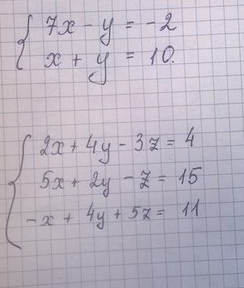 7x - y = -2
x + y = 10.
2x + 4y - 3z = 4
5x + 2y - z = 15
-x + 4y + 5z = 11